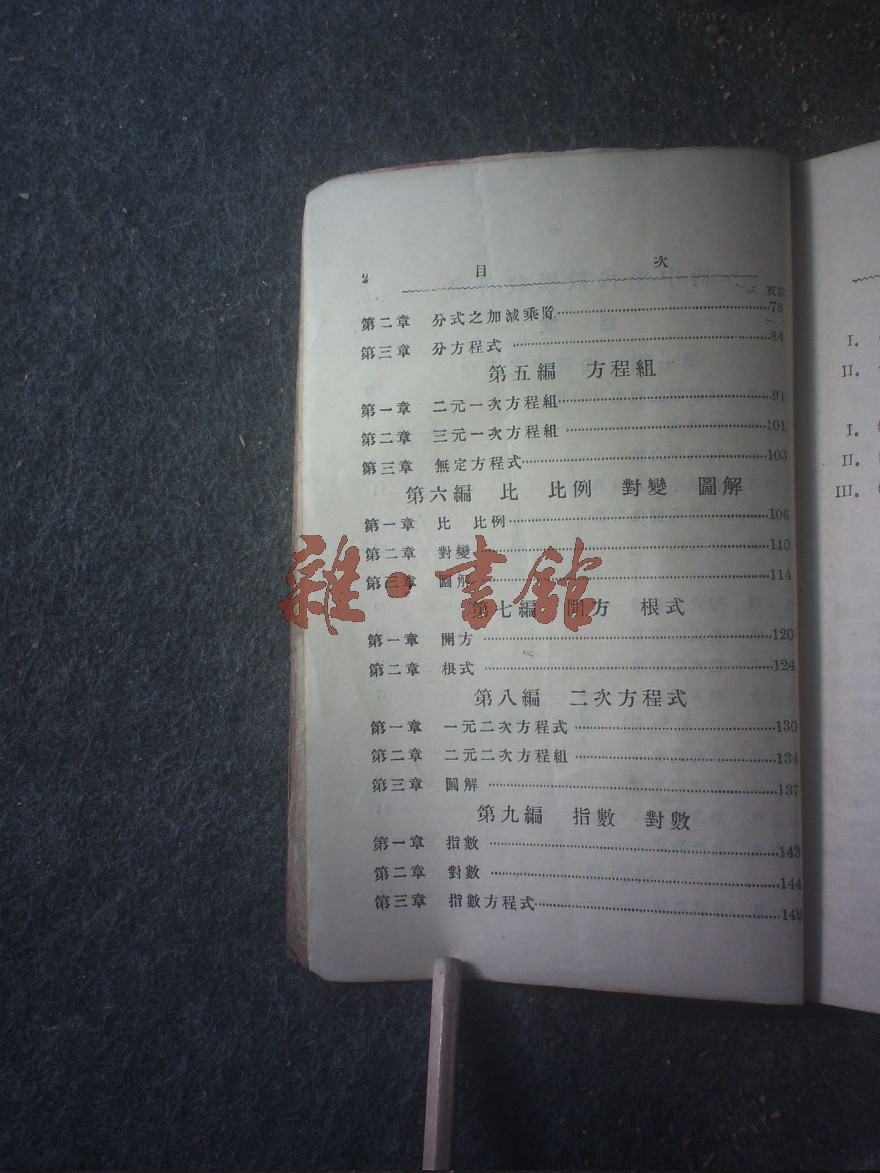 2 目 次
頁數
第二章 分式之加減乘除 78
第三章 分方程式 84
第五編 方程組
第一章 二元一次方程組 91
第二章 三元一次方程組 101
第三章 無定方程式 103
第六編 比 比例 對變 圖解
第一章 比 比例 106
第二章 對變 110
第三章 圖解 114
第七編 開方 根式
第一章 開方 120
第二章 根式 124
第八編 二次方程式
第一章 一元二次方程式 130
第二章 二元二次方程組 134
第三章 圖解 137
第九編 指數 對數
第一章 指數 143
第二章 對數 144
第三章 指數方程式 149
雜·書館
I.
II.
I.
II.
III.